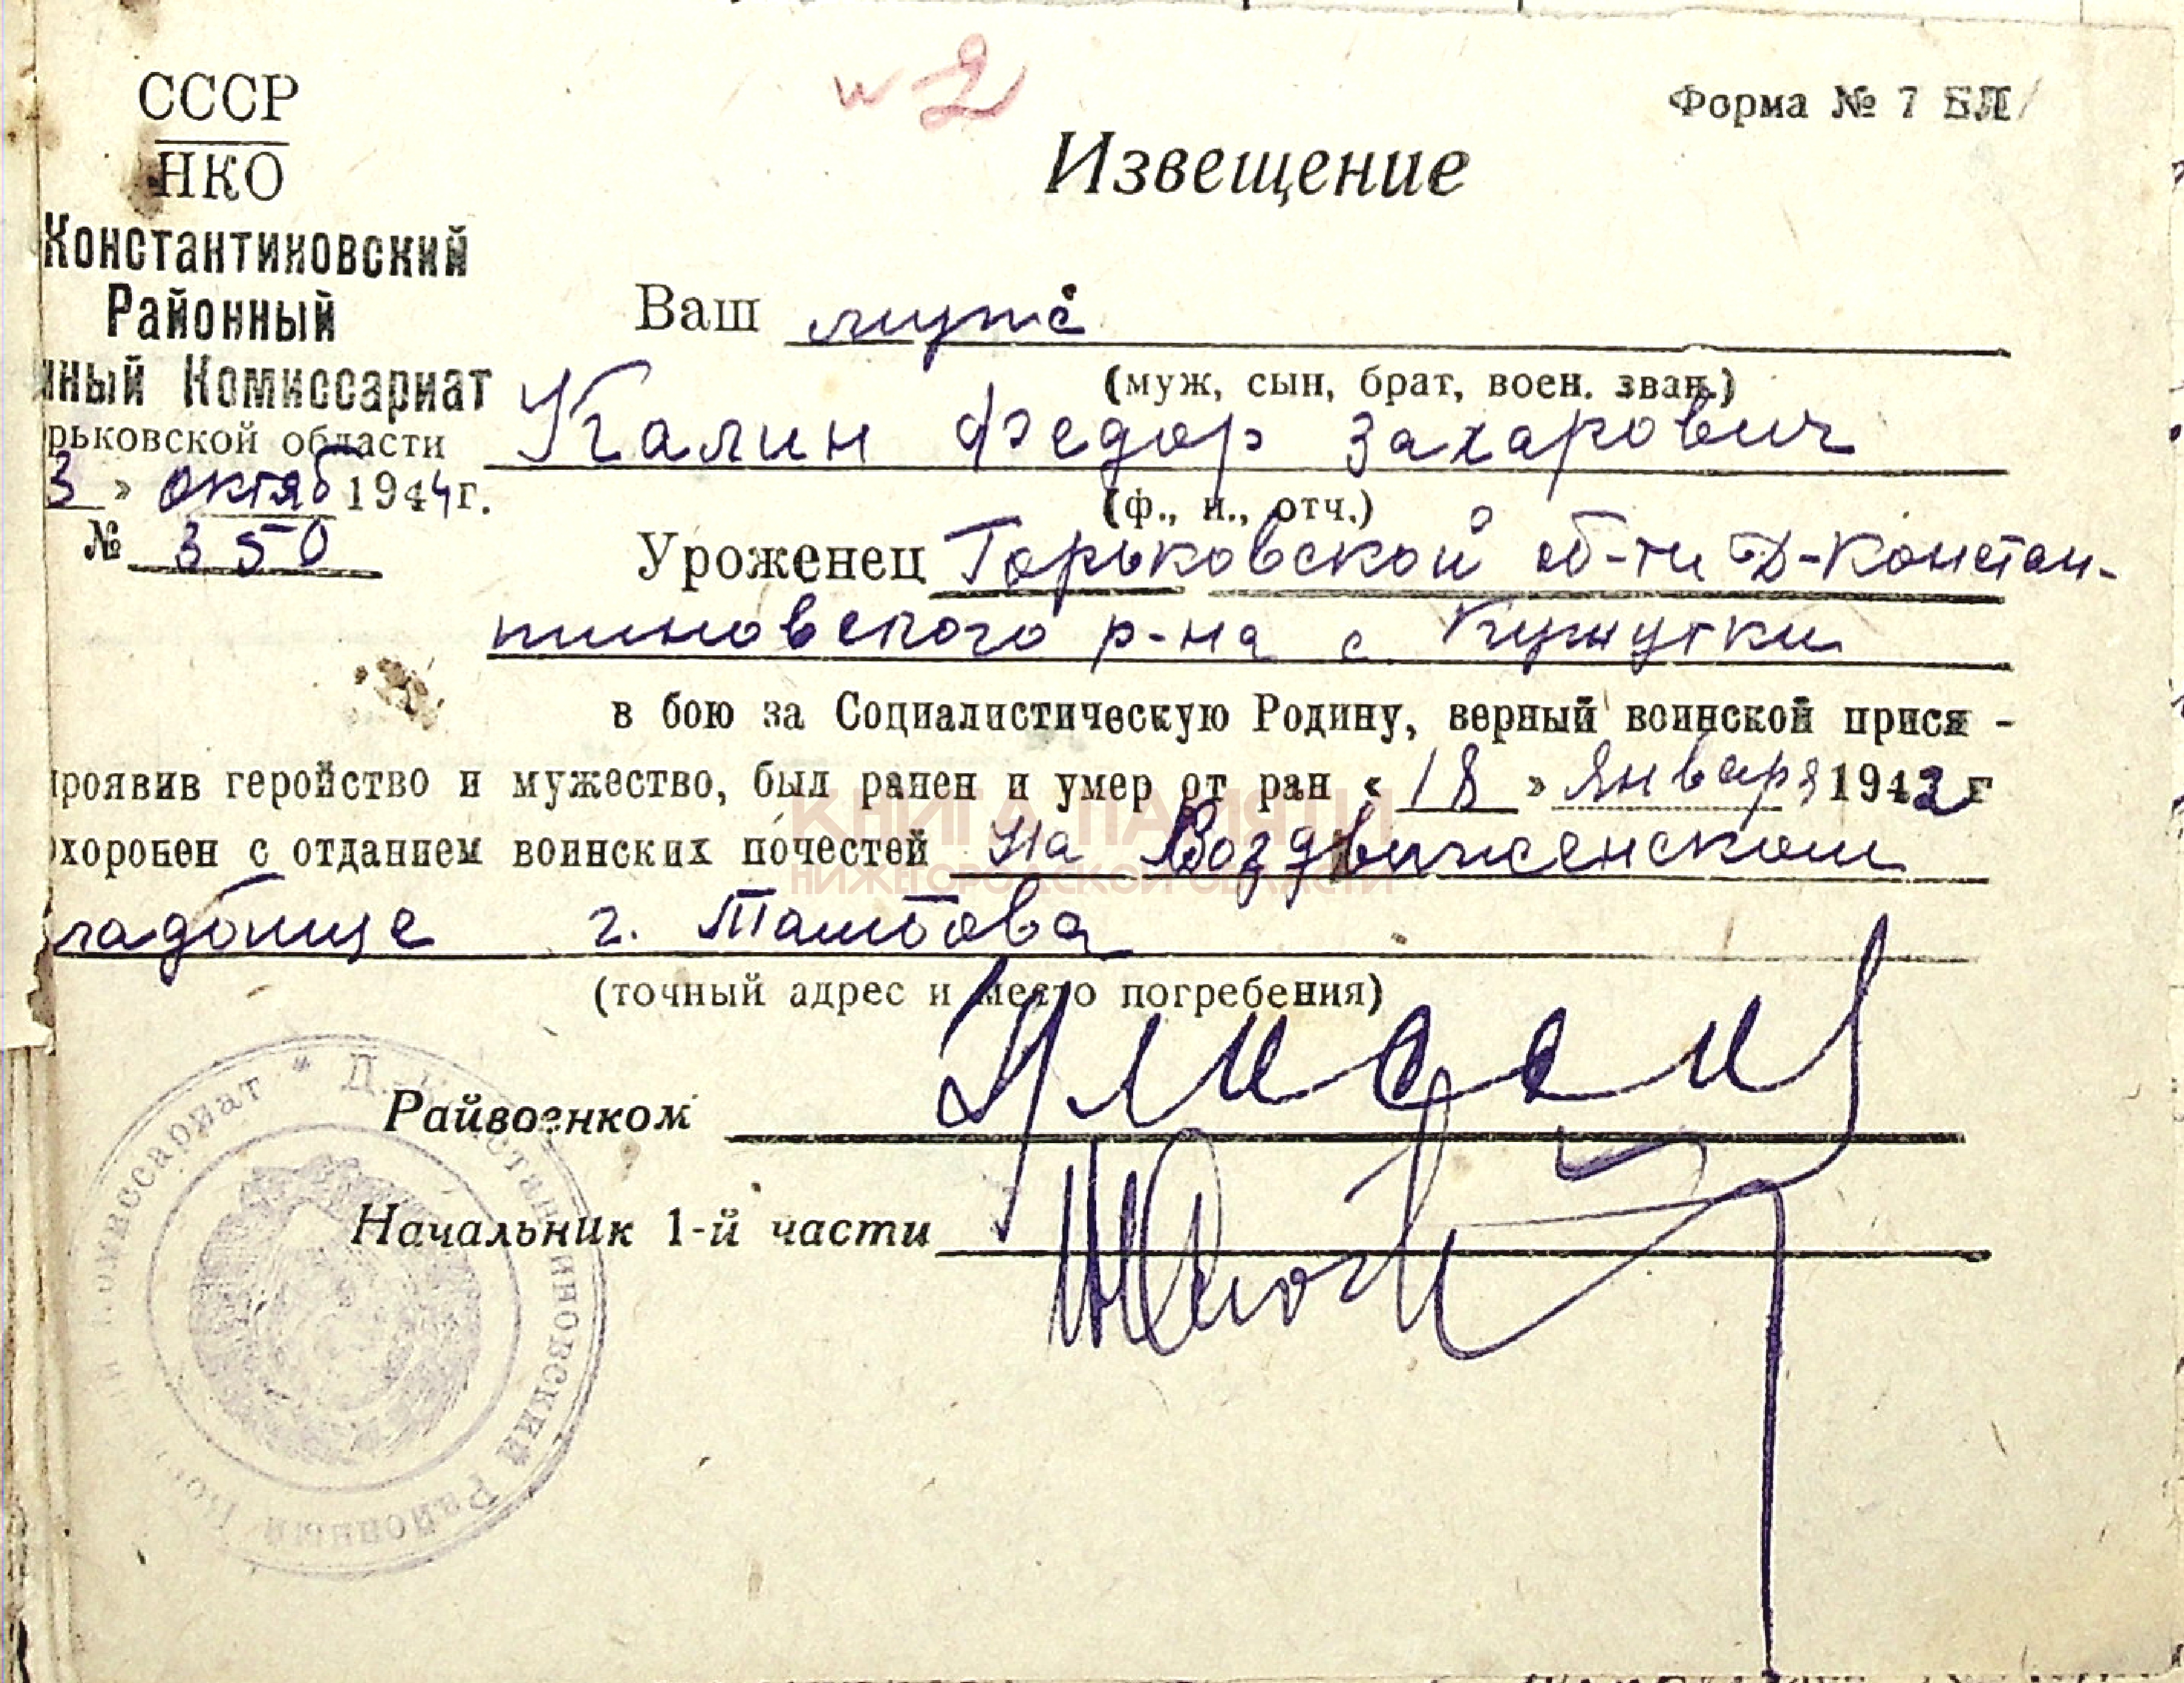 № 2
Форма № 7 БЛ
СССР
НКО
Константиновский
Районный
нный Комиссариат
рьковской области
3 » октяб 1944 г.
№ 350
Извещение
Ваш муж
(муж, сын, брат, воен. зван.)
Калин Федор Захарович
(ф., и., отч.)
Уроженец Горьковской об-ти Д-Констан-
тиновского р-на с Кужутки
в бою за Социалистическую Родину, верный воинской прися -
проявив геройство и мужество, был ранен и умер от ран « 18 » января 1942 г
охоронен с отданием воинских почестей на Воздвиженском
кладбище г. Тамбова
(точный адрес и место погребения)
КНИГА ПАМЯТИ
НИЖЕГОРОДСКОЙ ОБЛАСТИ
Райвоенком
Начальник 1-й части
Комиссариат * Д.-Константиновский Районный